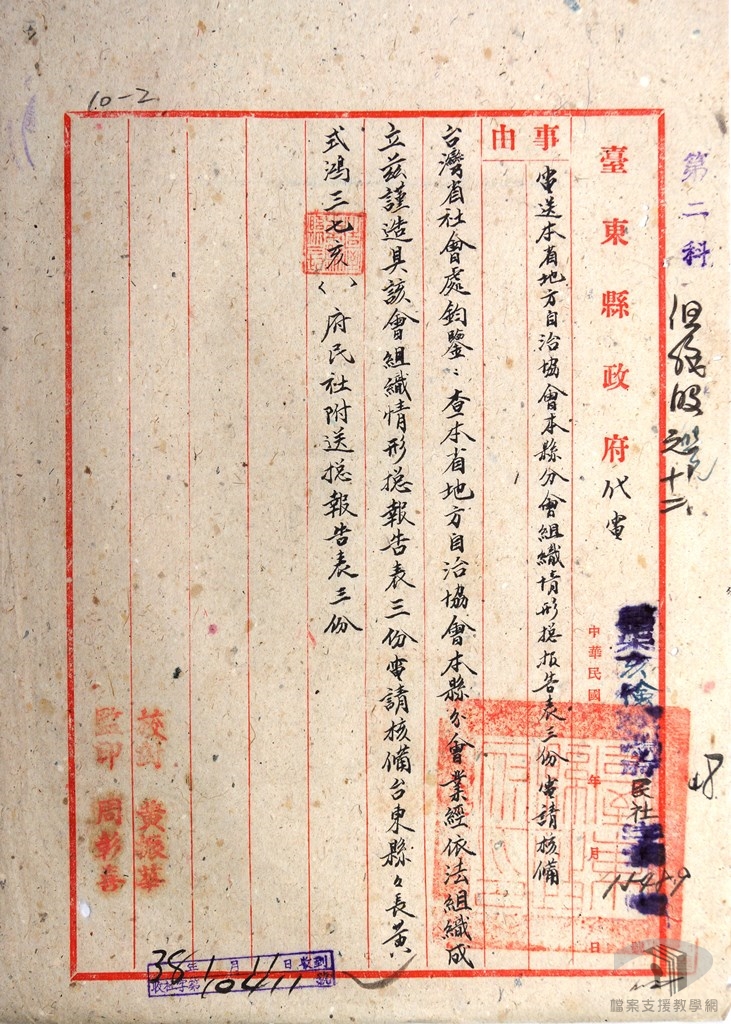 10-2
第二科
臺東縣政府代電
中華民國 年 月 日
民社
15489
事由
電送本省地方自治協會本縣分會組織情形摠报告表三份電請核備
台灣省社會處鈞鑒:查本省地方自治協會本縣分會業經依法組織成
立茲謹造具該會組織情形摠報告表三份電請核備台東縣々長黃
式鴻三七亥 府民社附送摠報告表三份
校對 黃振華
監印 周彰善
38年1月11日收到
收社字第10411號
檔案支援教學網